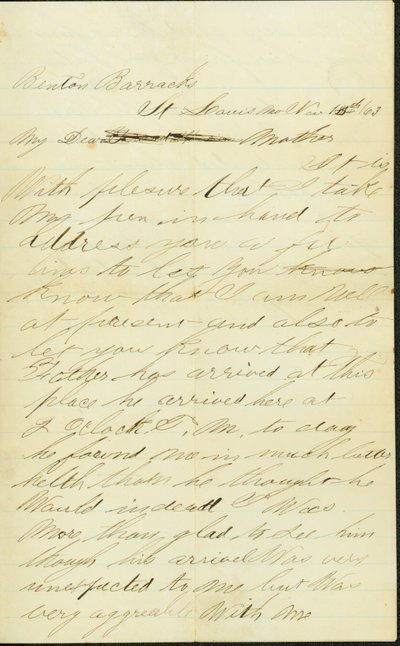 Benton Barracks
St Louis Mo Nov 1 /63
My Dear Mother
It is
With plesure that I take
My pen in hand to
address you a fu
lines to let you know
know that I am well
at present and also to
let you know that
Father has arrived at this
place he arrived here at
2 Oclock P, M, to day
he found me in much better
helth than he thought he
Would indeed I Was
More than glad to see him
though his arrivel Was very
unexpected to me but Was
very aggreable With me